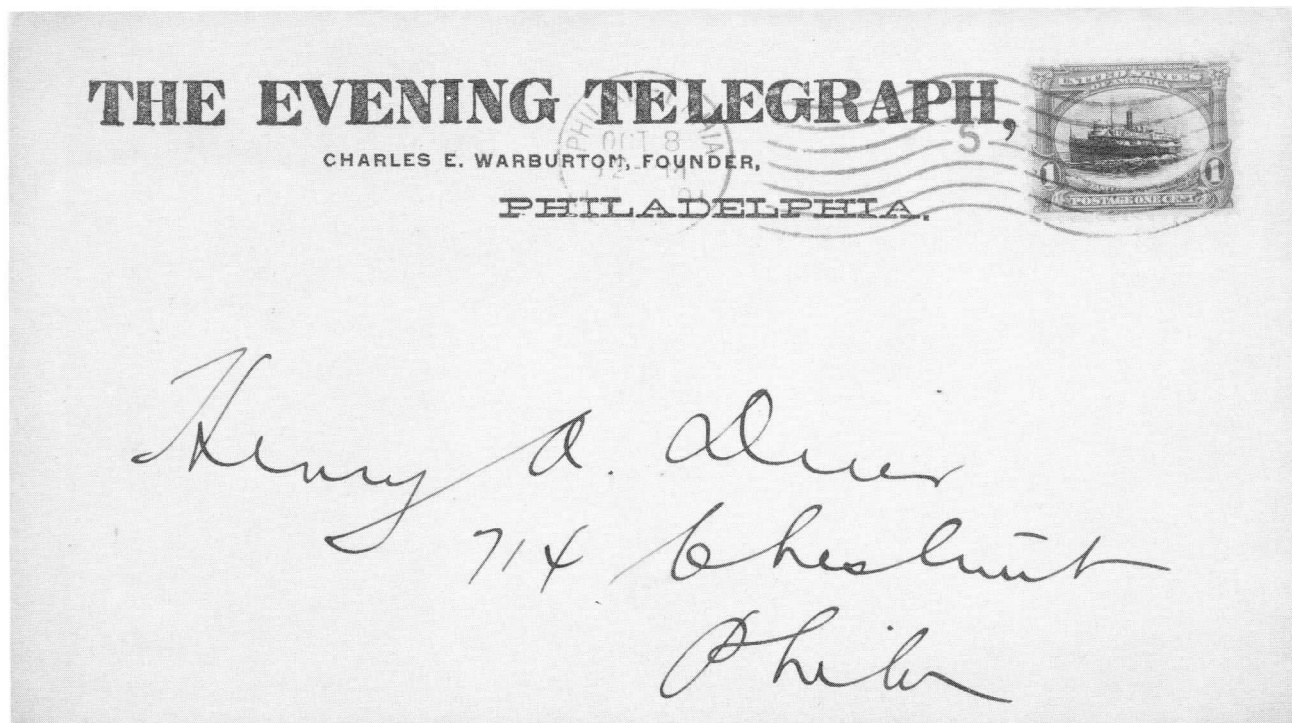 THE EVENING TELEGRAPH,
CHARLES E. WARBURTON, FOUNDER,
PHILADELPHIA.
PHILADELPHIA
OCT 8
12 - M
5
UNITED STATES
1 1
POSTAGE ONE CENT
Henry A. Dreer
714 Chestnut
Phila